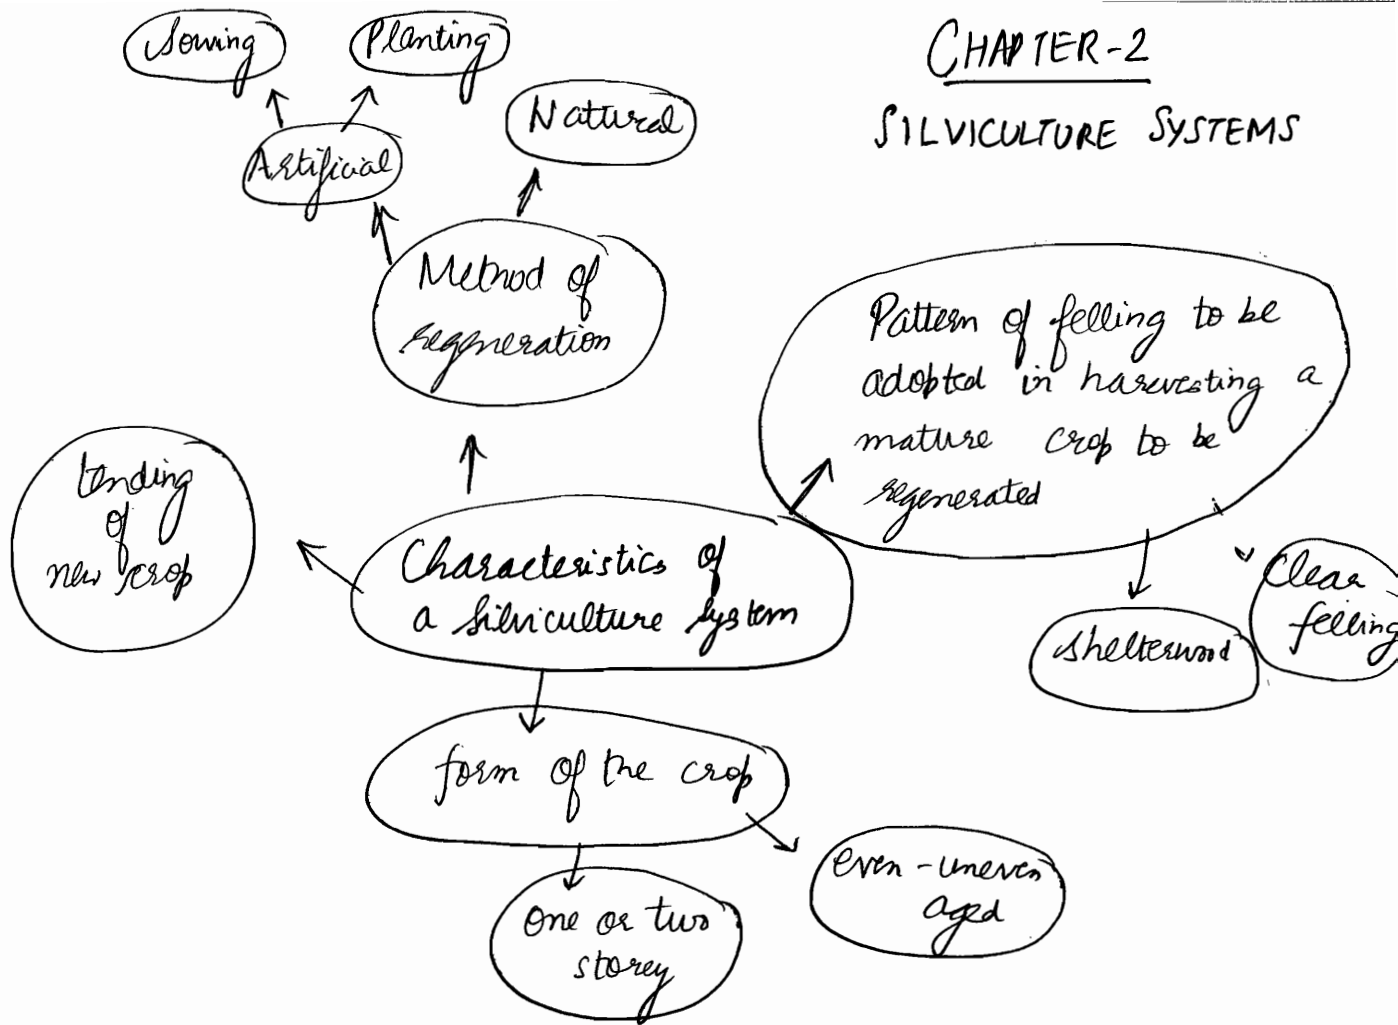 Sowing
Planting
CHAPTER-2
SILVICULTURE SYSTEMS
Natural
Artificial
Method of
regeneration
Pattern of felling to be
adopted in harvesting a
mature crop to be
regenerated
tending
of
new crop
Characteristics of
a silviculture system
Clear
felling
shelterwood
form of the crop
even-uneven
aged
one or two
storey